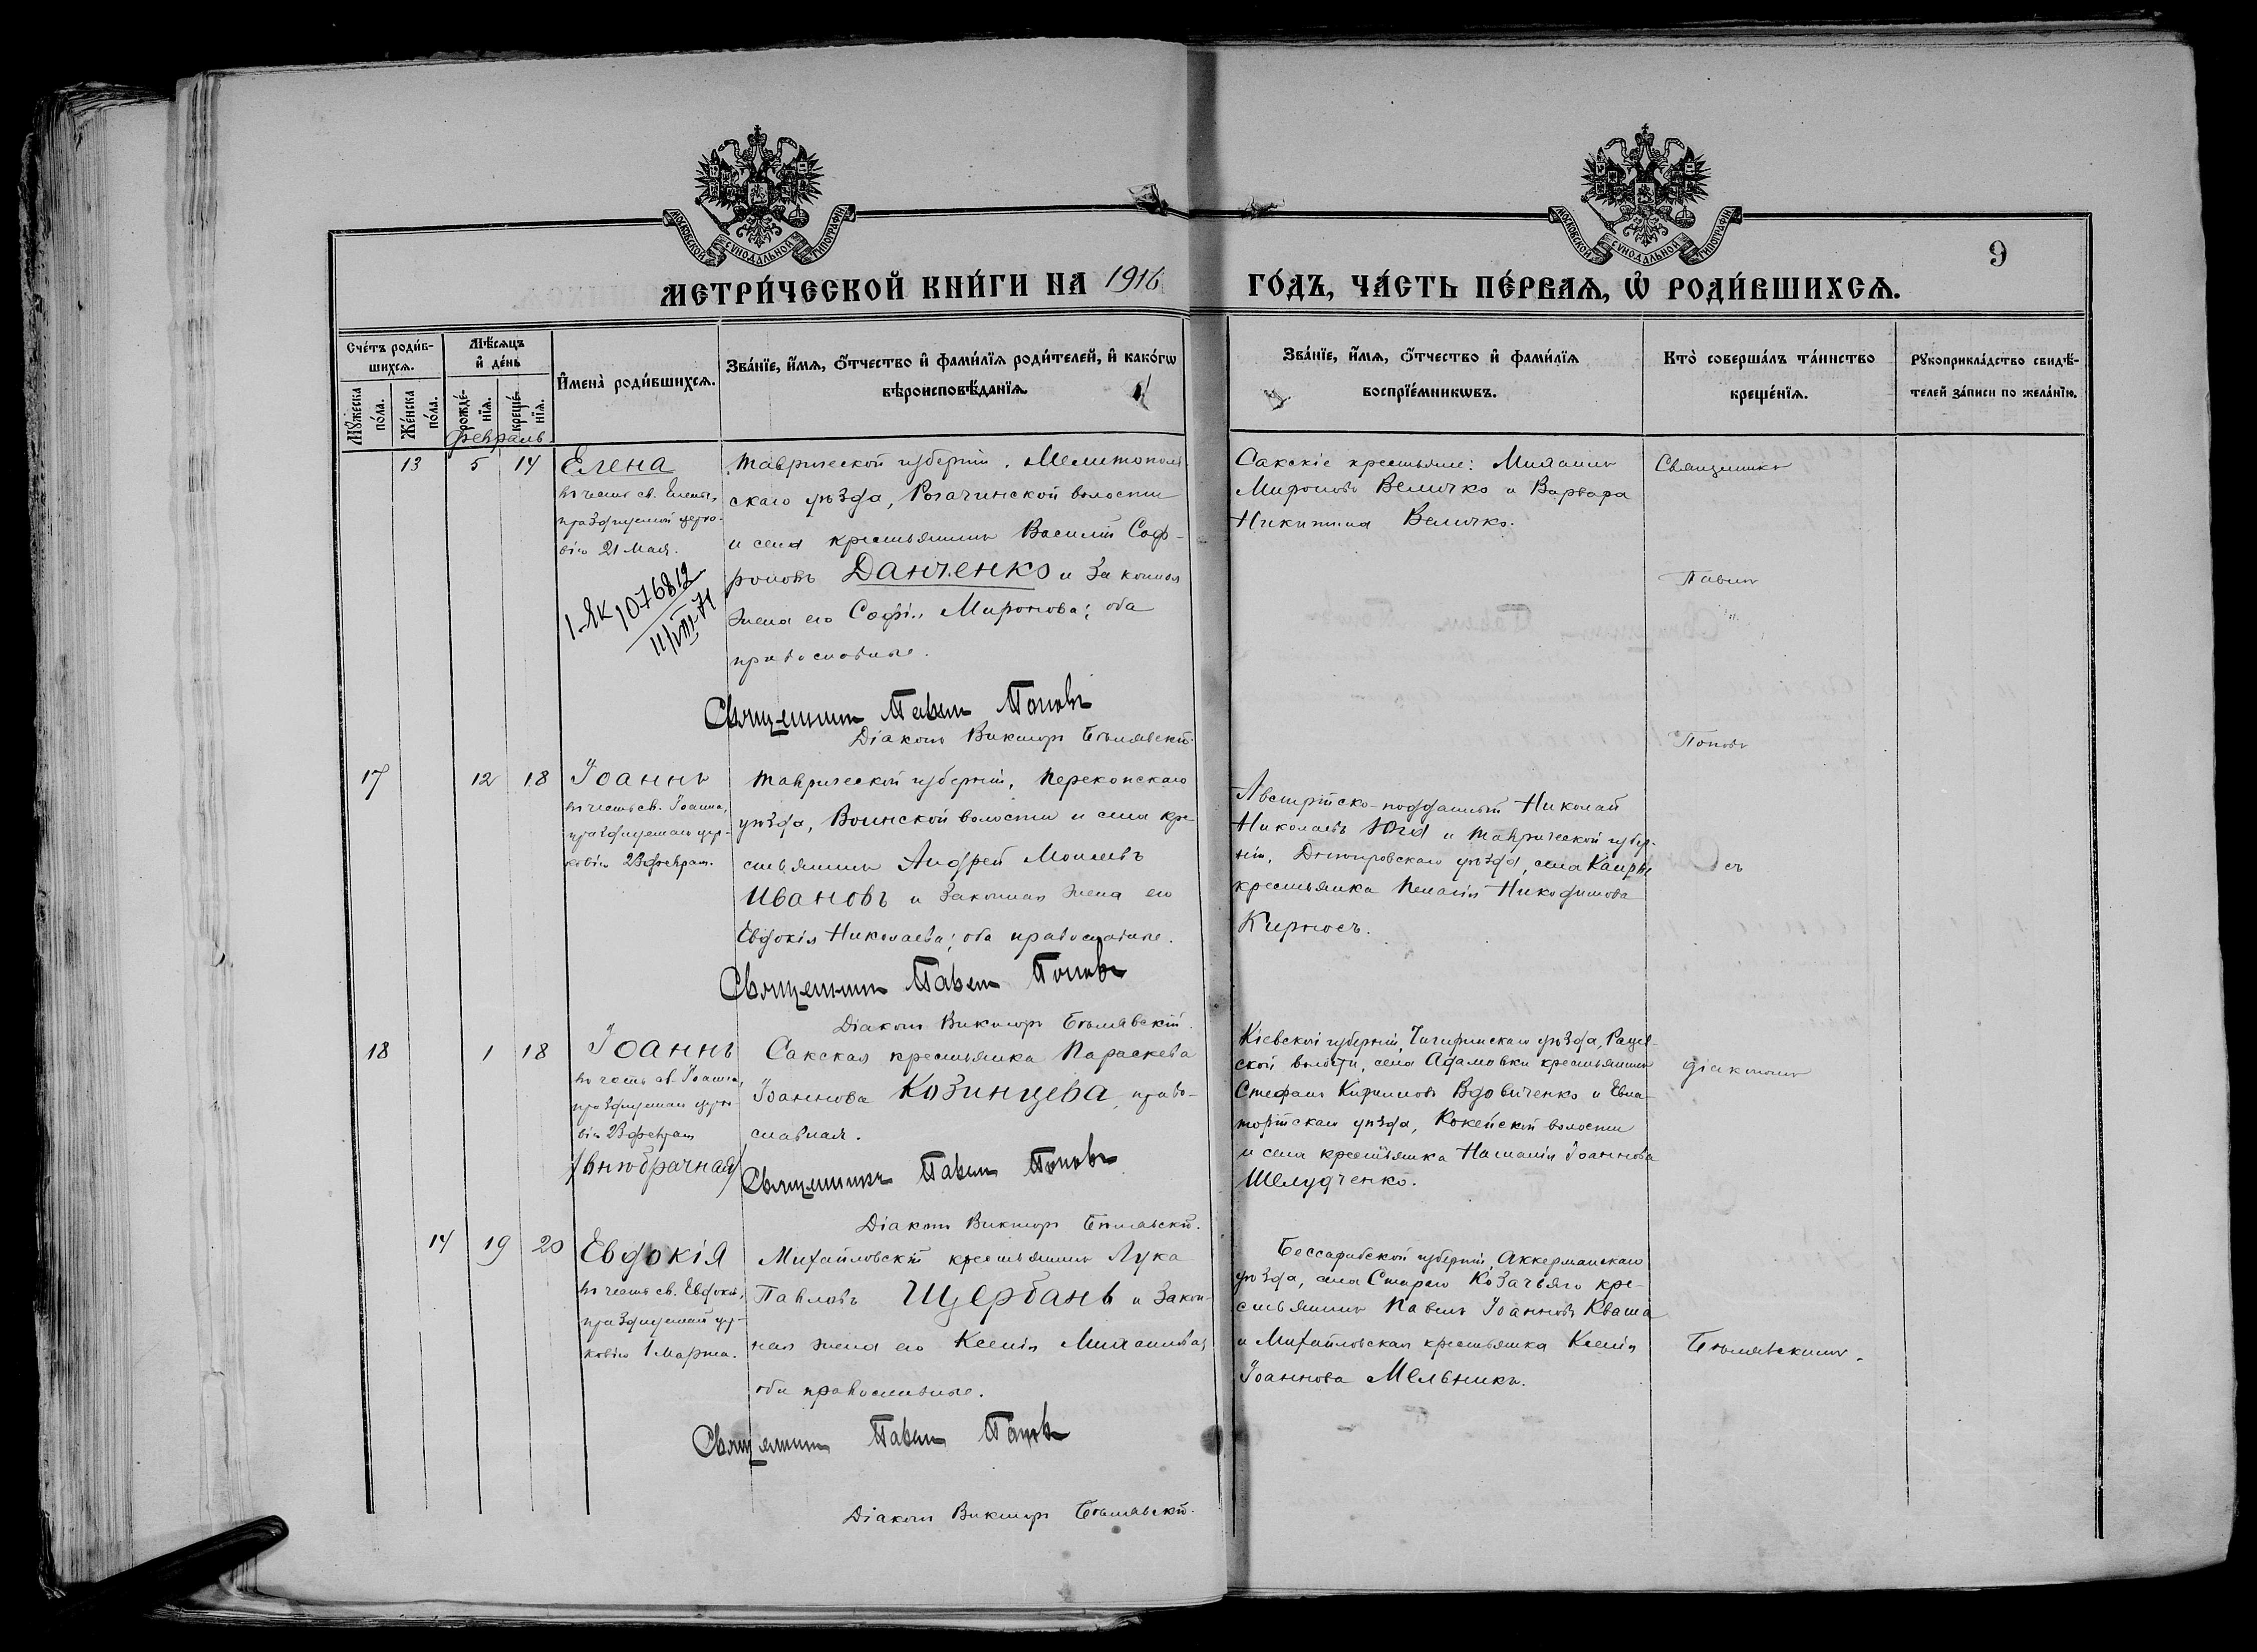 МОСКОВСКОЙ СУНОДАЛЬНОЙ ТИПОГРАФІИ
МОСКОВСКОЙ СУНОДАЛЬНОЙ ТИПОГРАФІИ
9
МЕТРИ́ЧЕСКОЙ КНИ́ГИ НА 1916 ГО́ДЪ, ЧА́СТЬ ПЕ́РВАѦ, Ѽ РОДИ́ВШИХСѦ.
Сче́тъ роди́в-
шихсѧ.
Мꙋ́жеска по́ла.
Же́нска по́ла.
Мѣ́сѧцъ
и҆ де́нь
рожде́-
нїѧ.
креще́-
нїѧ.
И҆мена̀ роди́вшихсѧ.
Зва́нїе, и҆́мѧ, ѻ҆́тчество и҆ фами́лїѧ роди́телей, и҆ како́гѡ
вѣроисповѣ́данїѧ.
Зва́нїе, и҆́мѧ, ѻ҆́тчество и҆ фами́лїѧ
воспрїе́мникѡвъ.
Кто̀ соверша́лъ та́инство
креще́нїѧ.
Рꙋкоприкла́дство свидѣ́-
телей за́писи по жела́нїю.
февраль
13 5 14
Елена
въ честь св. Елены,
празднуемой церко-
вію 21 Мая.
1-ЯК 1076812
11/VIII-71
Таврической губерніи, Мелитополь-
скаго уѣзда, Рогачинской волости
и села крестьянинъ Василій Соф-
роновъ Данченко и законная
жена его Софія Миронова; оба
православные.
Священникъ Павелъ Поповъ
Діаконъ Викторъ Бѣлявскій.
Сакскіе крестьяне: Михаилъ
Мироновъ Величко и Варвара
Никитина Величко.
Священникъ
Павелъ
Поповъ
17 12 18
Іоаннъ
въ честь св. Іоанна,
празднуемаго цер-
ковію 23 феврал.
Таврической губерніи, Перекопскаго
уѣзда, Воинской волости и села кре-
стьянинъ Андрей Моисеевъ
Ивановъ и законная жена его
Евдокія Николаева; оба православные.
Священникъ Павелъ Поповъ
Діаконъ Викторъ Бѣлявскій.
Австрійско-подданный Николай
Николаевъ Юга и Таврической губер-
ніи, Днѣпровскаго уѣзда, села Каиры
крестьянка Пелагія Никодимова
Кирносъ.
съ
18 1 18
Іоаннъ
въ честь св. Іоанна,
празднуемаго церко-
вію 23 феврал.
/внѣбрачная/
Сакская крестьянка Параскева
Іоаннова Козинцева, право-
славная.
Священникъ Павелъ Поповъ
Діаконъ Викторъ Бѣлявскій.
Кіевской губерніи, Чигиринскаго уѣзда, Рацев-
ской волости, села Адамовки крестьянинъ
Стефанъ Кирилловъ Вдовиченко и Евпа-
торійскаго уѣзда, Кокейской волости
и села крестьянка Наталія Іоаннова
Шелудченко.
діакономъ
14 19 20
Евдокія
въ честь св. Евдокіи,
празднуемой цер-
ковію 1 Марта.
Михайловскій крестьянинъ Лука
Павловъ Щербань и закон-
ная жена его Ксенія Михаилова;
оба православные.
Священникъ Павелъ Поповъ
Діаконъ Викторъ Бѣлявскій.
Бессарабской губерніи, Аккерманскаго
уѣзда, села Стараго Козачьяго кре-
стьянинъ Павелъ Іоанновъ Кваша
и Михайловская крестьянка Ксенія
Іоаннова Мельникъ.
Бѣлявскимъ.